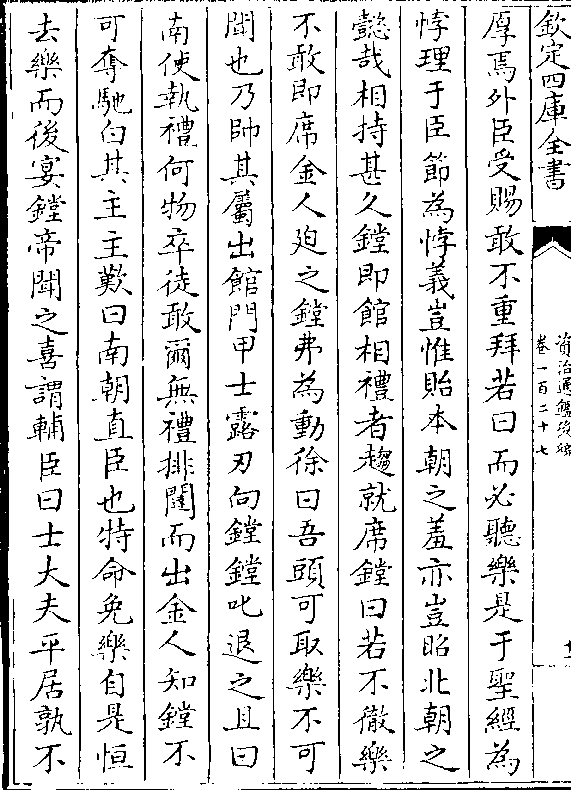 欽定四庫全書
資治通鑑後編
卷一百二十七
厚焉外臣受賜敢不重拜若曰而必聽樂是于聖經為
悖理于臣節為悖義豈惟貽本朝之羞亦豈昭北朝之
懿哉相持甚久鏜即館相禮者趨就席鏜曰若不徹樂
不敢即席金人廹之鏜弗為動徐曰吾頭可取樂不可
聞也乃帥其屬出館門甲士露刃向鏜鏜叱退之且曰
南使執禮何物卒徒敢爾無禮排闥而出金人知鏜不
可奪馳白其主主歎曰南朝直臣也特命免樂自是恒
去樂而後宴鏜帝聞之喜謂輔臣曰士大夫平居孰不